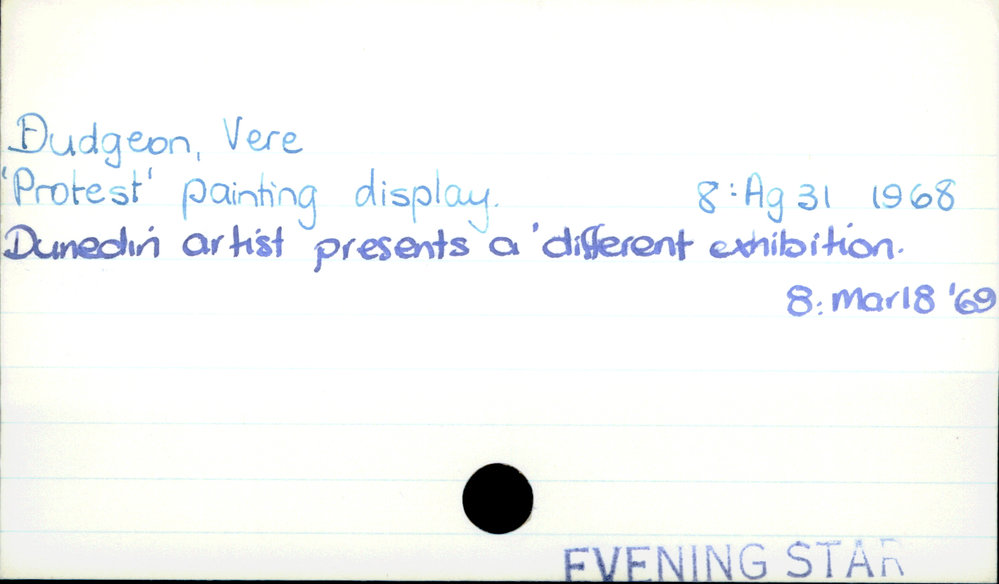 Dudgeon, Vere
'Protest' painting display. 8:Ag 31 1968
Dunedin artist presents a 'different exhibition.
8: Mar 18 '69
EVENING STAR